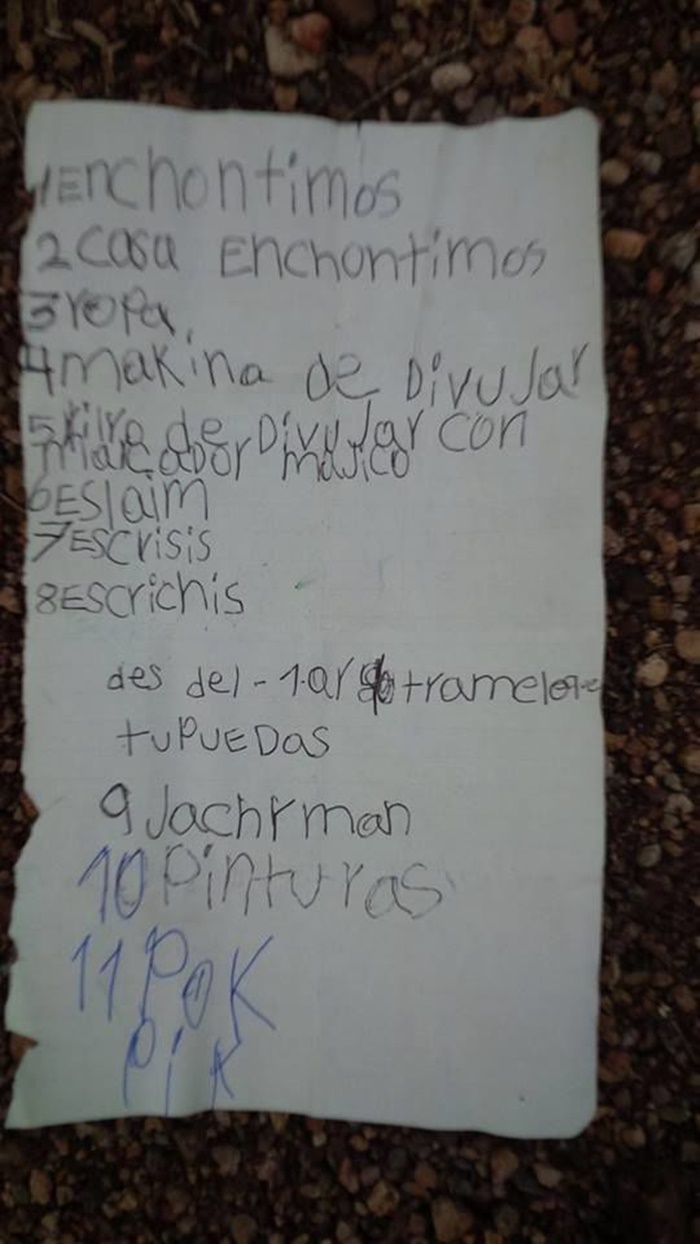 1Enchontimos
2 casa Enchontimos
3ropa
4makina de Divujar
5 de Divujar con
marcador majico
6ESlaim
7Escrisis
8Escrichis
des del-1.ar
tuPUEDas
9Jachrman
10Pinturas
11POK
Pik